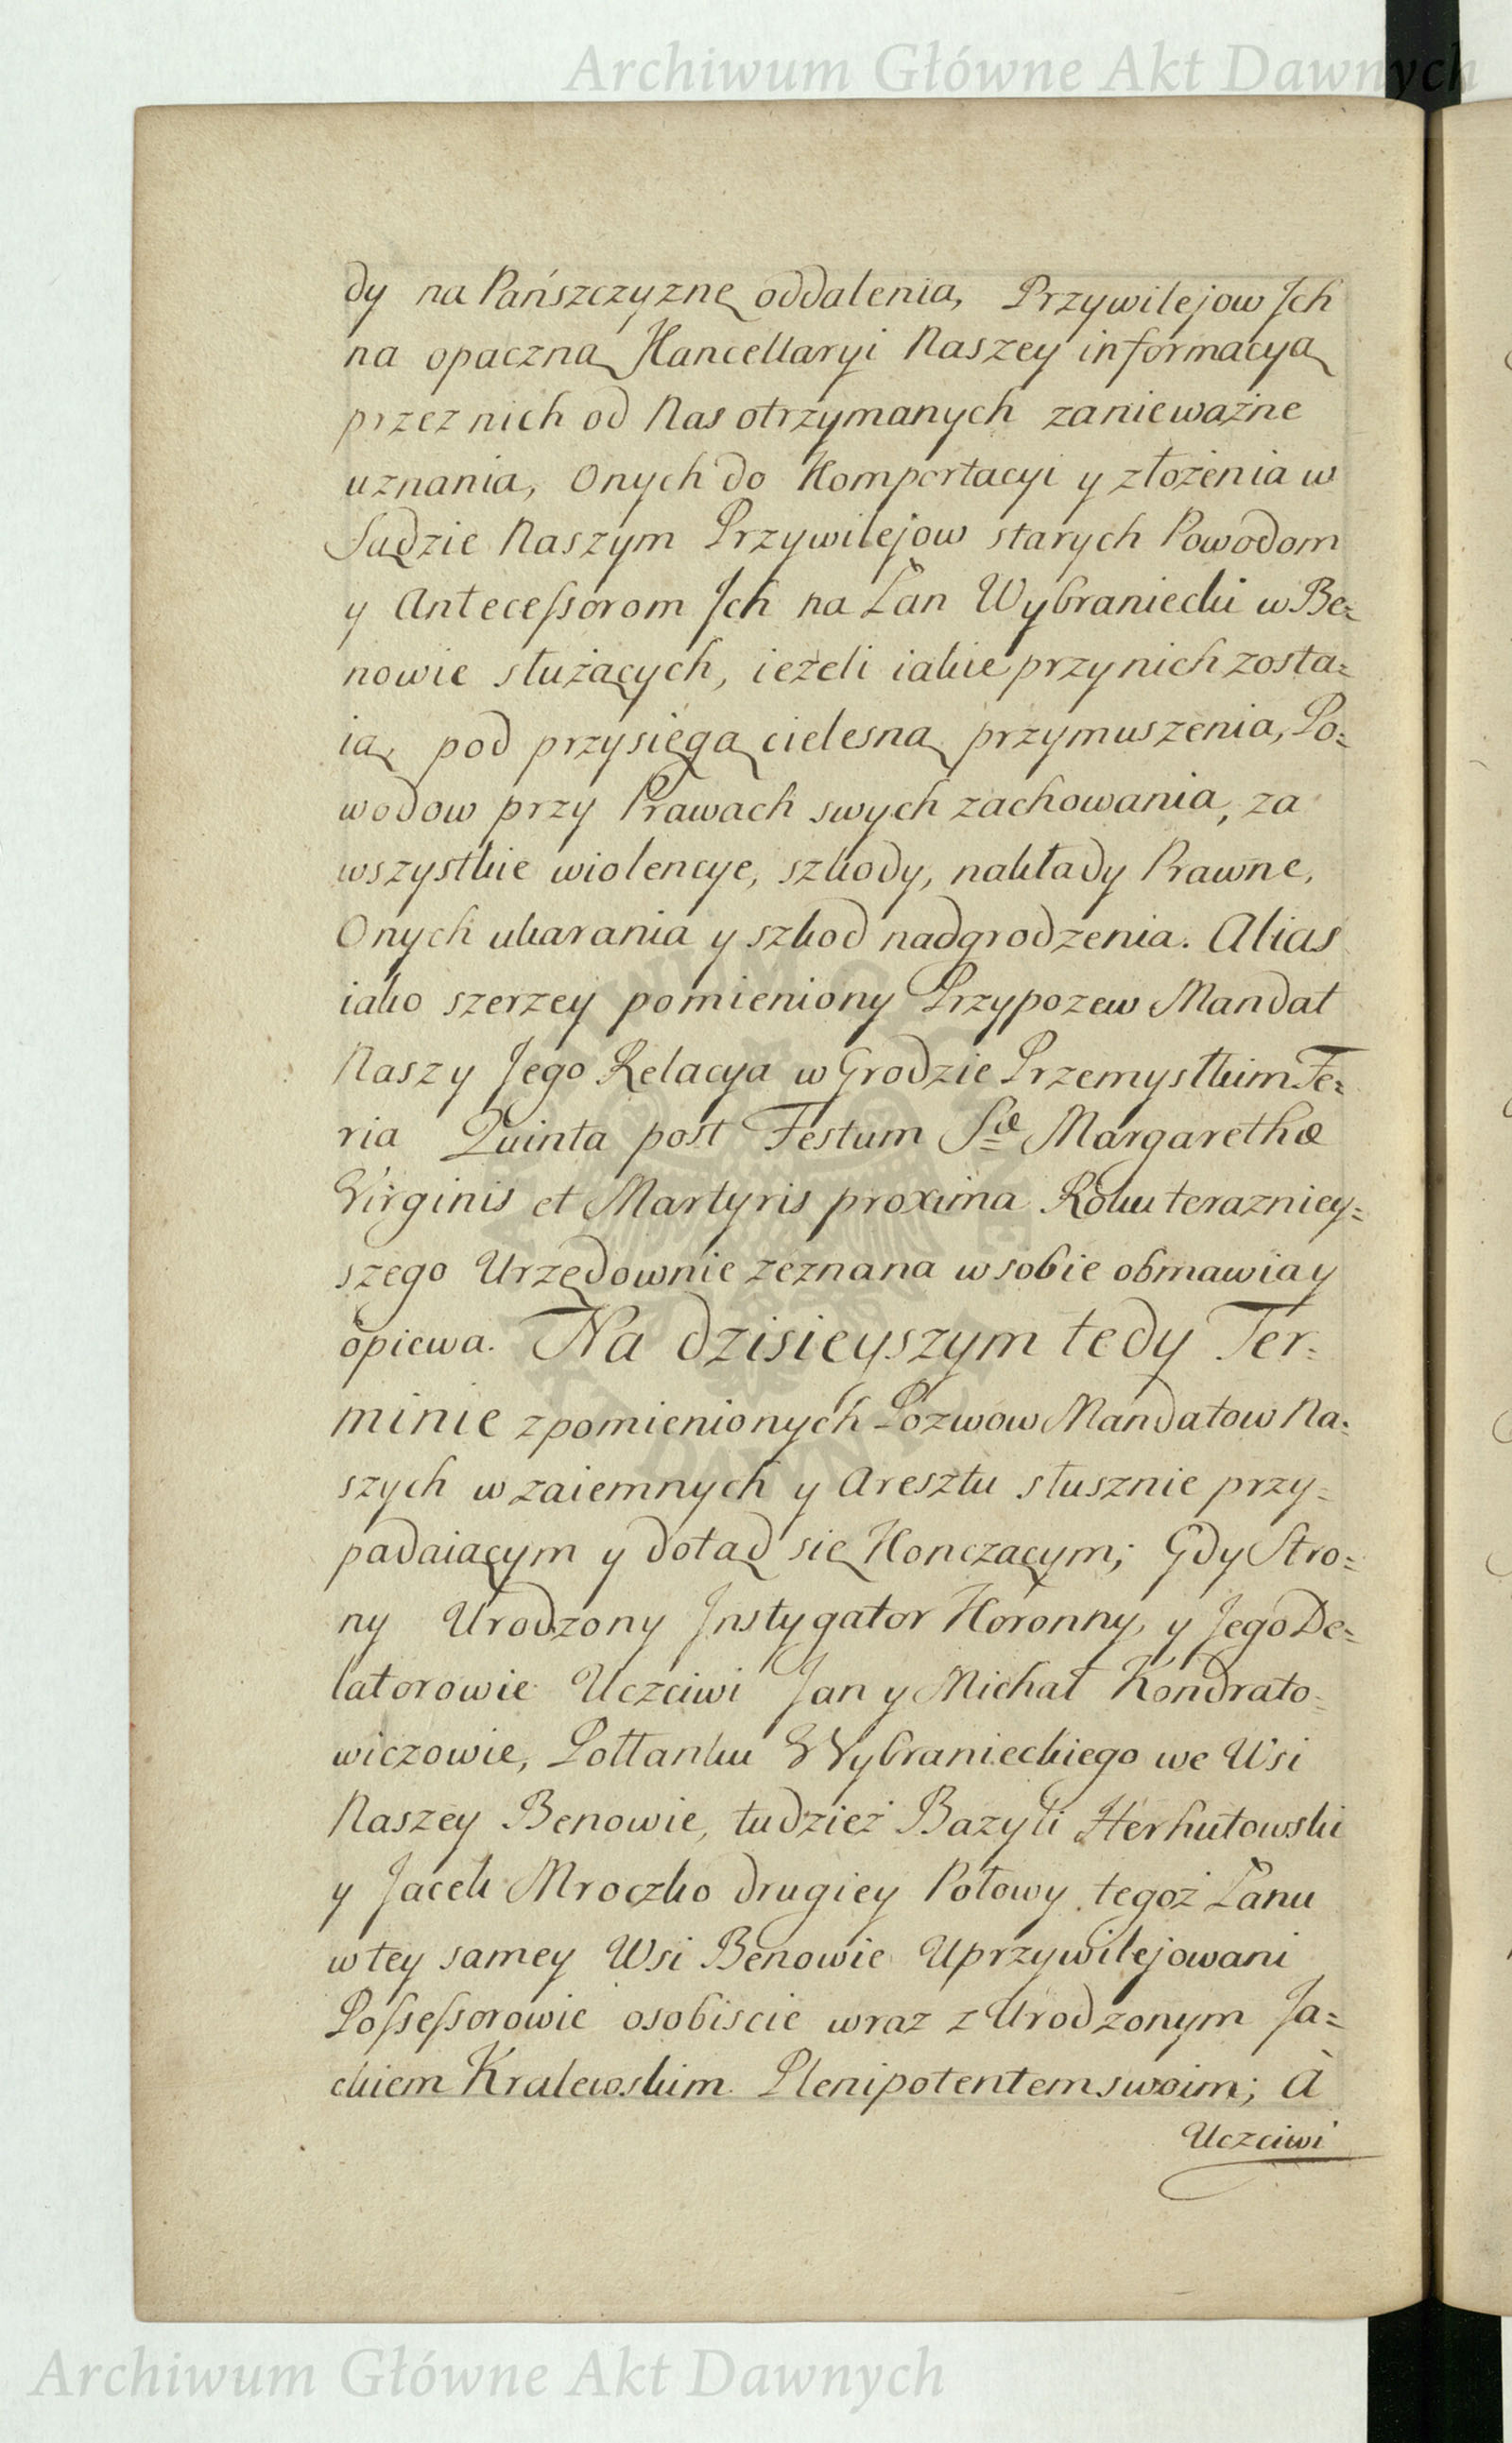 Archiwum Główne Akt Dawnych
dy na Pańszczyznę oddalenia, Przywilejow Jch
na opaczną Kancellaryi Naszey informacyą
przez nich od Nas otrzymanych zanieważne
uznania, Onych do Komportacyi y złożenia w
Sądzie Naszym Przywilejow starych Powodom
y Antecessorom Jch na Łan Wybraniecki w Be=
nowie służących, ieżeli iakie przy nich zosta=
ią, pod przysięgą cielesną przymuszenia, Po=
wodow przy Prawach swych zachowania, za
wszystkie wiolencye, szkody, nakłady Prawne,
Onych ukarania y szkod nadgrodzenia. Alias
iako szerzey pomieniony Przypozew Mandat
Naszy Jego Relacya w Grodzie Przemyslkim Fe=
ria Quinta post Festum Sæ Margarethæ
Virginis et Martyris proxima Roku terazniey=
szego Urzędownie zeznana w sobie obmawia y
opiewa. Na dzisieyszym tedy Ter=
minie z pomienionych Pozwow Mandatow Na=
szych wzaiemnych y Aresztu słusznie przy=
padaiącym y dotąd się Konczącym; Gdy Stro=
ny Urodzony Jnstygator Koronny, y Jego De=
latorowie Uczciwi Jan y Michał Kondrato=
wiczowie, Połłanku Wybranieckiego we Wsi
Naszey Benowie, tudzież Bazyli Herhutowski
y Jacek Mroczko drugiey Połowy tegoż Łanu
w tey samey Wsi Benowie Uprzywilejowani
Possessorowie osobiscie wraz z Urodzonym Ja=
ckiem Kralewskim Plenipotentem swoim; A
Uczciwi
Archiwum Główne Akt Dawnych